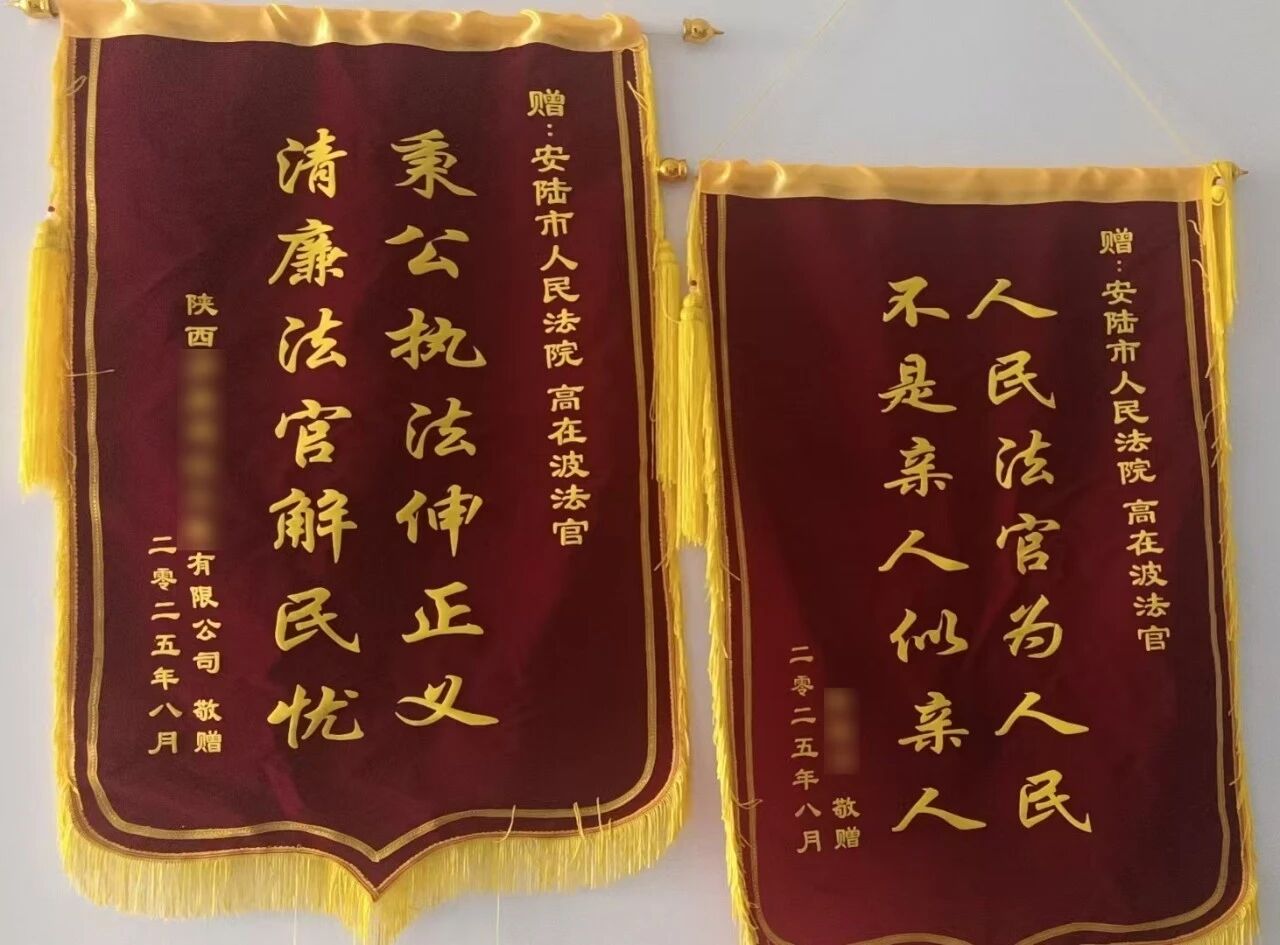 赠：安陆市人民法院 高在波法官
秉公执法伸正义
清廉法官解民忧
陕西 有限公司 敬赠
二零二五年八月
赠：安陆市人民法院 高在波法官
人民法官为人民
不是亲人似亲人
敬赠
二零二五年八月